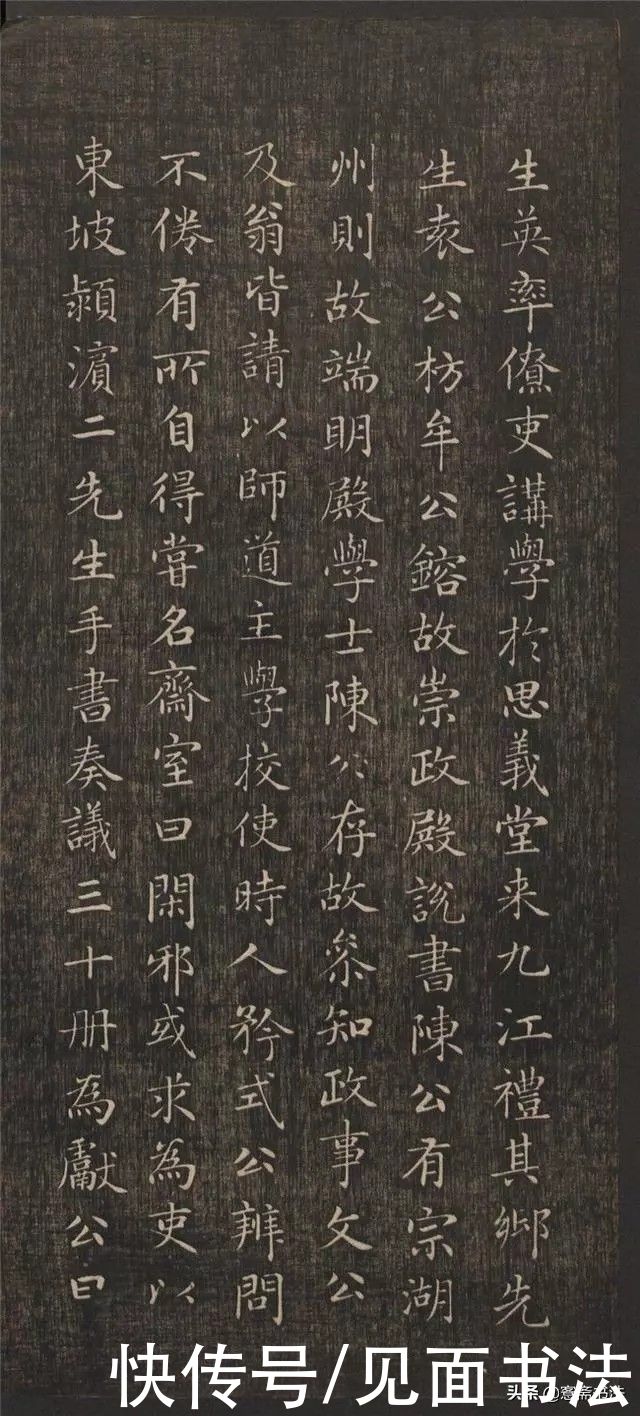 生英率僚吏講學於思義堂来九江禮其鄉先
生袁公枋牟公鎔故崇政殿說書陳公有宗湖
州則故端明殿學士陳公存故參知政事文公
及翁皆請以師道主學校使時人矜式公辨問
不倦有所自得嘗名齋室曰閑邪或求為吏以
東坡潁濵二先生手書奏議三十册為獻公曰
快传号/见面书法
头条@蹇斋书法